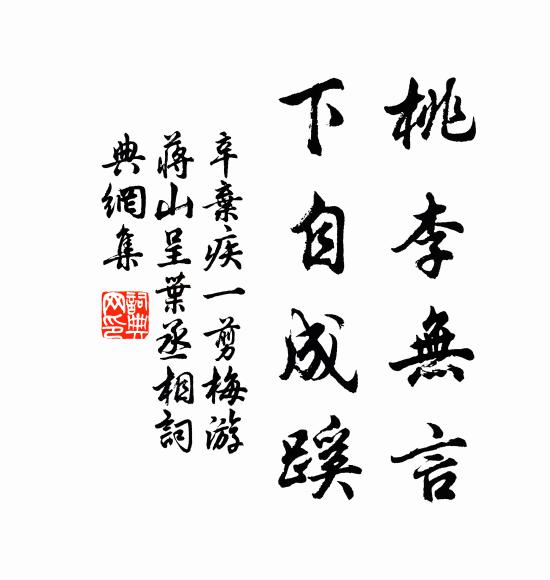 桃李無言
下自成蹊
辛棄疾一剪梅游
蔣山呈葉丞相詞
典網集
詞典
网印